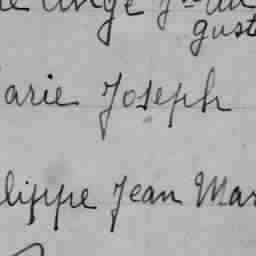 gust
arie Joseph
lippe Jean Mar